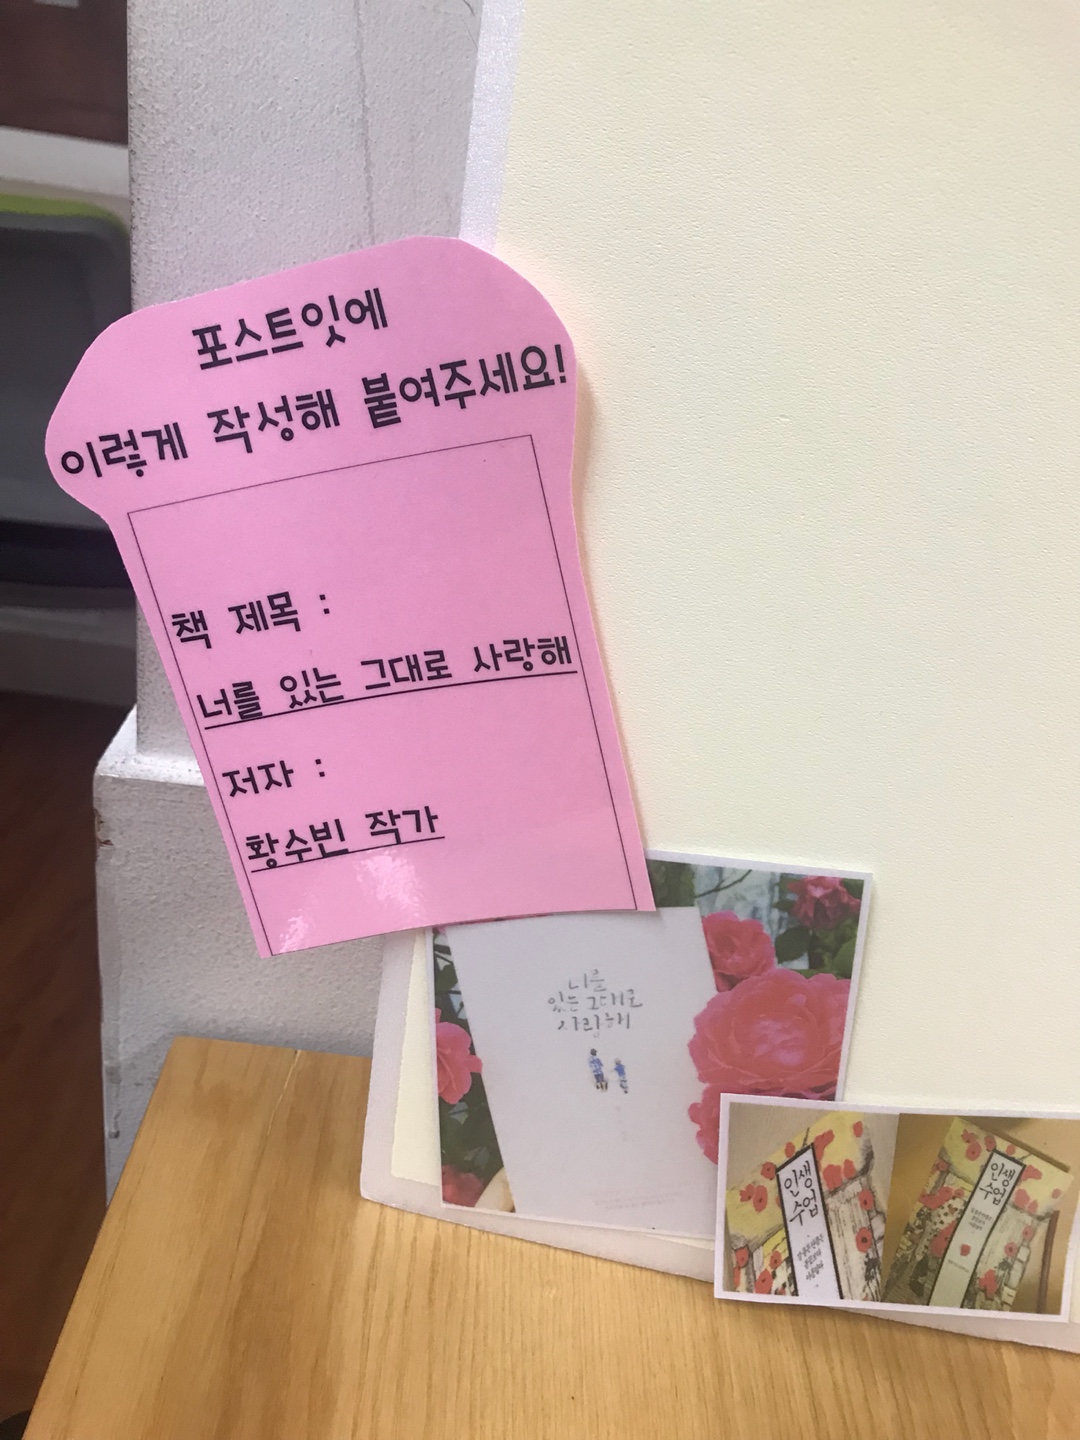 포스트잇에
이렇게 작성해 붙여주세요!
책 제목 :
너를 있는 그대로 사랑해
저자 :
황수빈 작가
너를
있는 그대로
사랑해
인생
수업
인생
수업